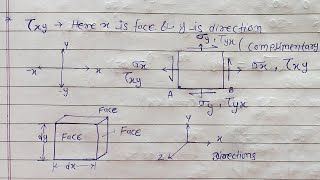 → τxy → Here x is face & y is direction
σy, τyx (complimentary)
Y
-x
x
-Y
σx
τxy
σx, τxy
A
B
σy, τyx
Face
Face
dy
dx
Y
x
Z
Directions